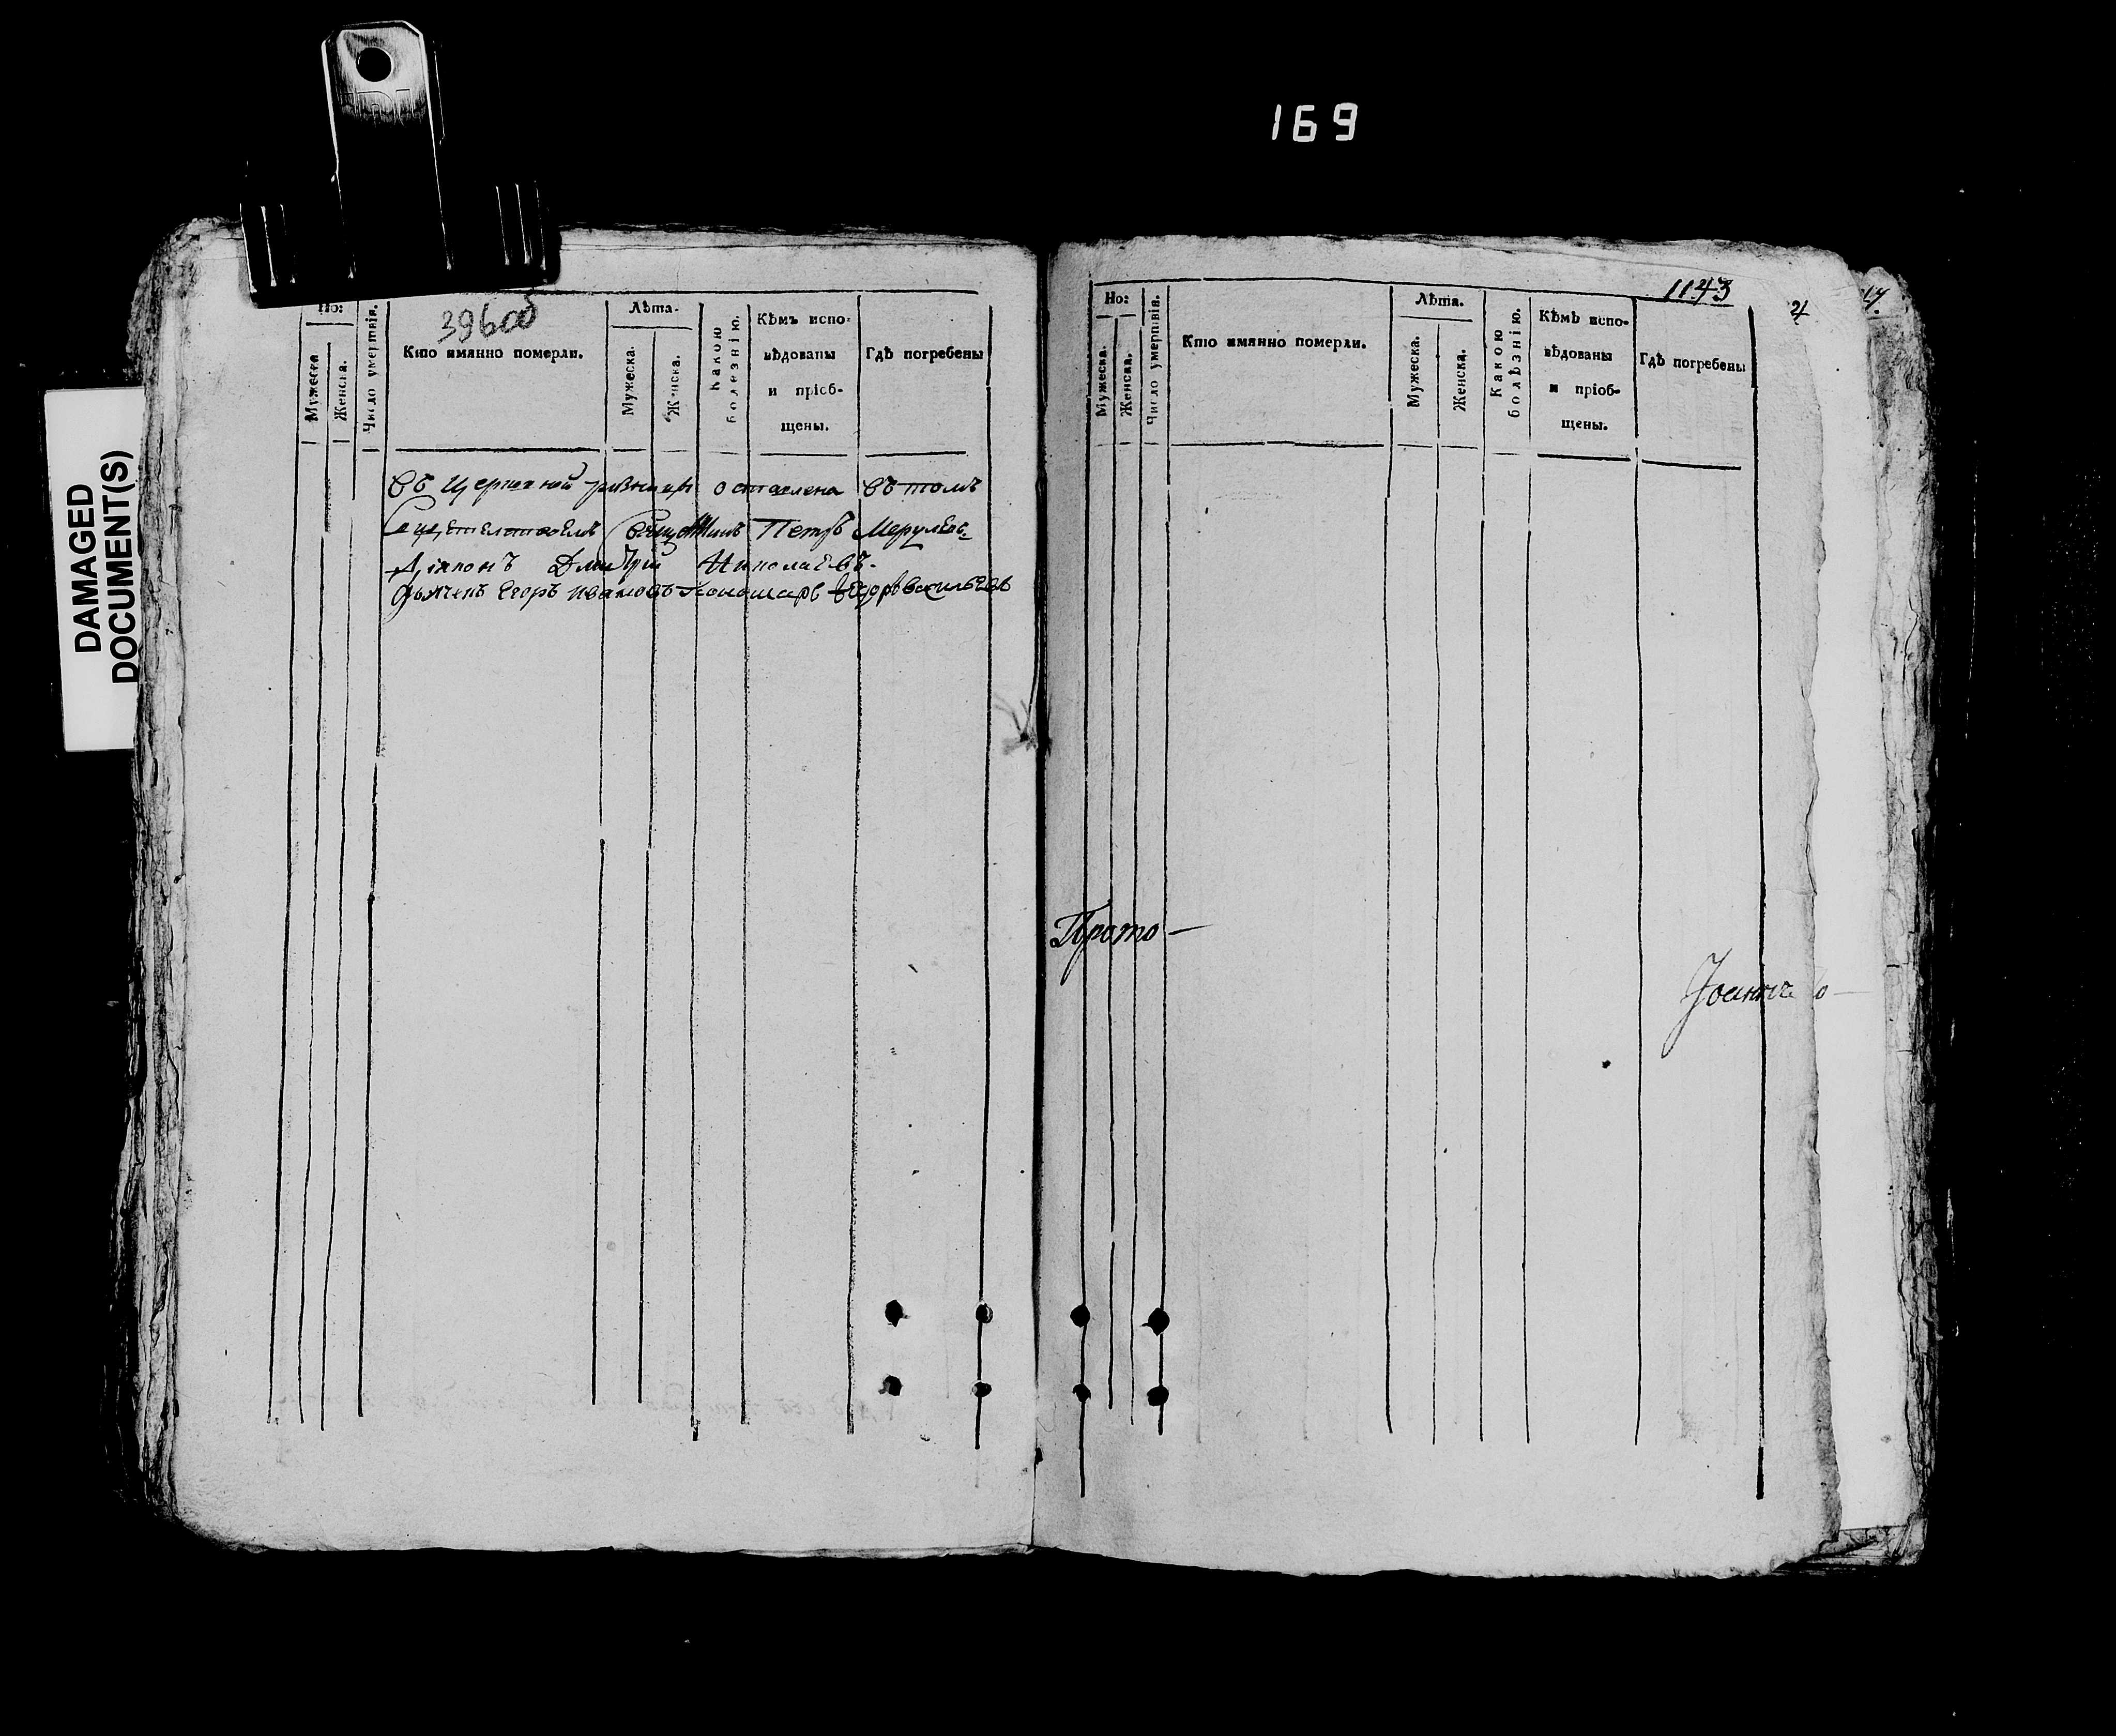 169
DAMAGED
DOCUMENT(S)
Но:
Мужеска
Женска.
Число умертвія.
396об
Кто имянно померли.
Лѣта.
Мужеска.
Женска.
Какою
болезнію.
Кѣмъ испо-
вѣдованы
и пріоб-
щены.
Гдѣ погребены
въ церковной ризницы оставлена въ томъ
Свидетелствоемъ Священникъ Петръ
Діаконъ Димитрій Николаевъ.
Дьячекъ Егоръ Ивановъ Пономарь Ѳедоръ Васильевъ
1143
4
17.
Но:
Мужеска.
Женска.
Число умертвія.
Кто имянно померли.
Лѣта.
Мужеска.
Женска.
Какою
болѣзнію.
Кѣмъ испо-
вѣдованы
и пріоб-
щены.
Гдѣ погребены
Прото-